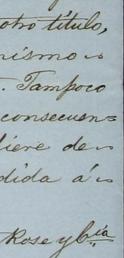 otro título,
nismo
. Tampoco
consecuen=
liere de
dida á
Rose y b.ria